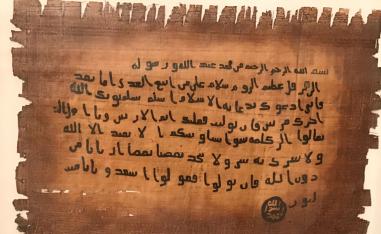 بسم الله الرحمن الرحيم من محمد عبد الله ورسوله
الى هرقل عظيم الروم سلام على من اتبع الهدى اما بعد
فاني ادعوك بدعاية الاسلام اسلم تسلم يوتك الله
اجرك مرتين فان توليت فعليك اثم الاريسين ويا اهل
تعالوا الى كلمة سوا بيننا وبينكم الا نعبد الا الله
ولا نشرك به شي ولا يتخذ بعضنا بعضا اربابا من
دون الله فان تولوا فقولوا اشهدوا بانا مس
لمون
الله
رسول
محمد